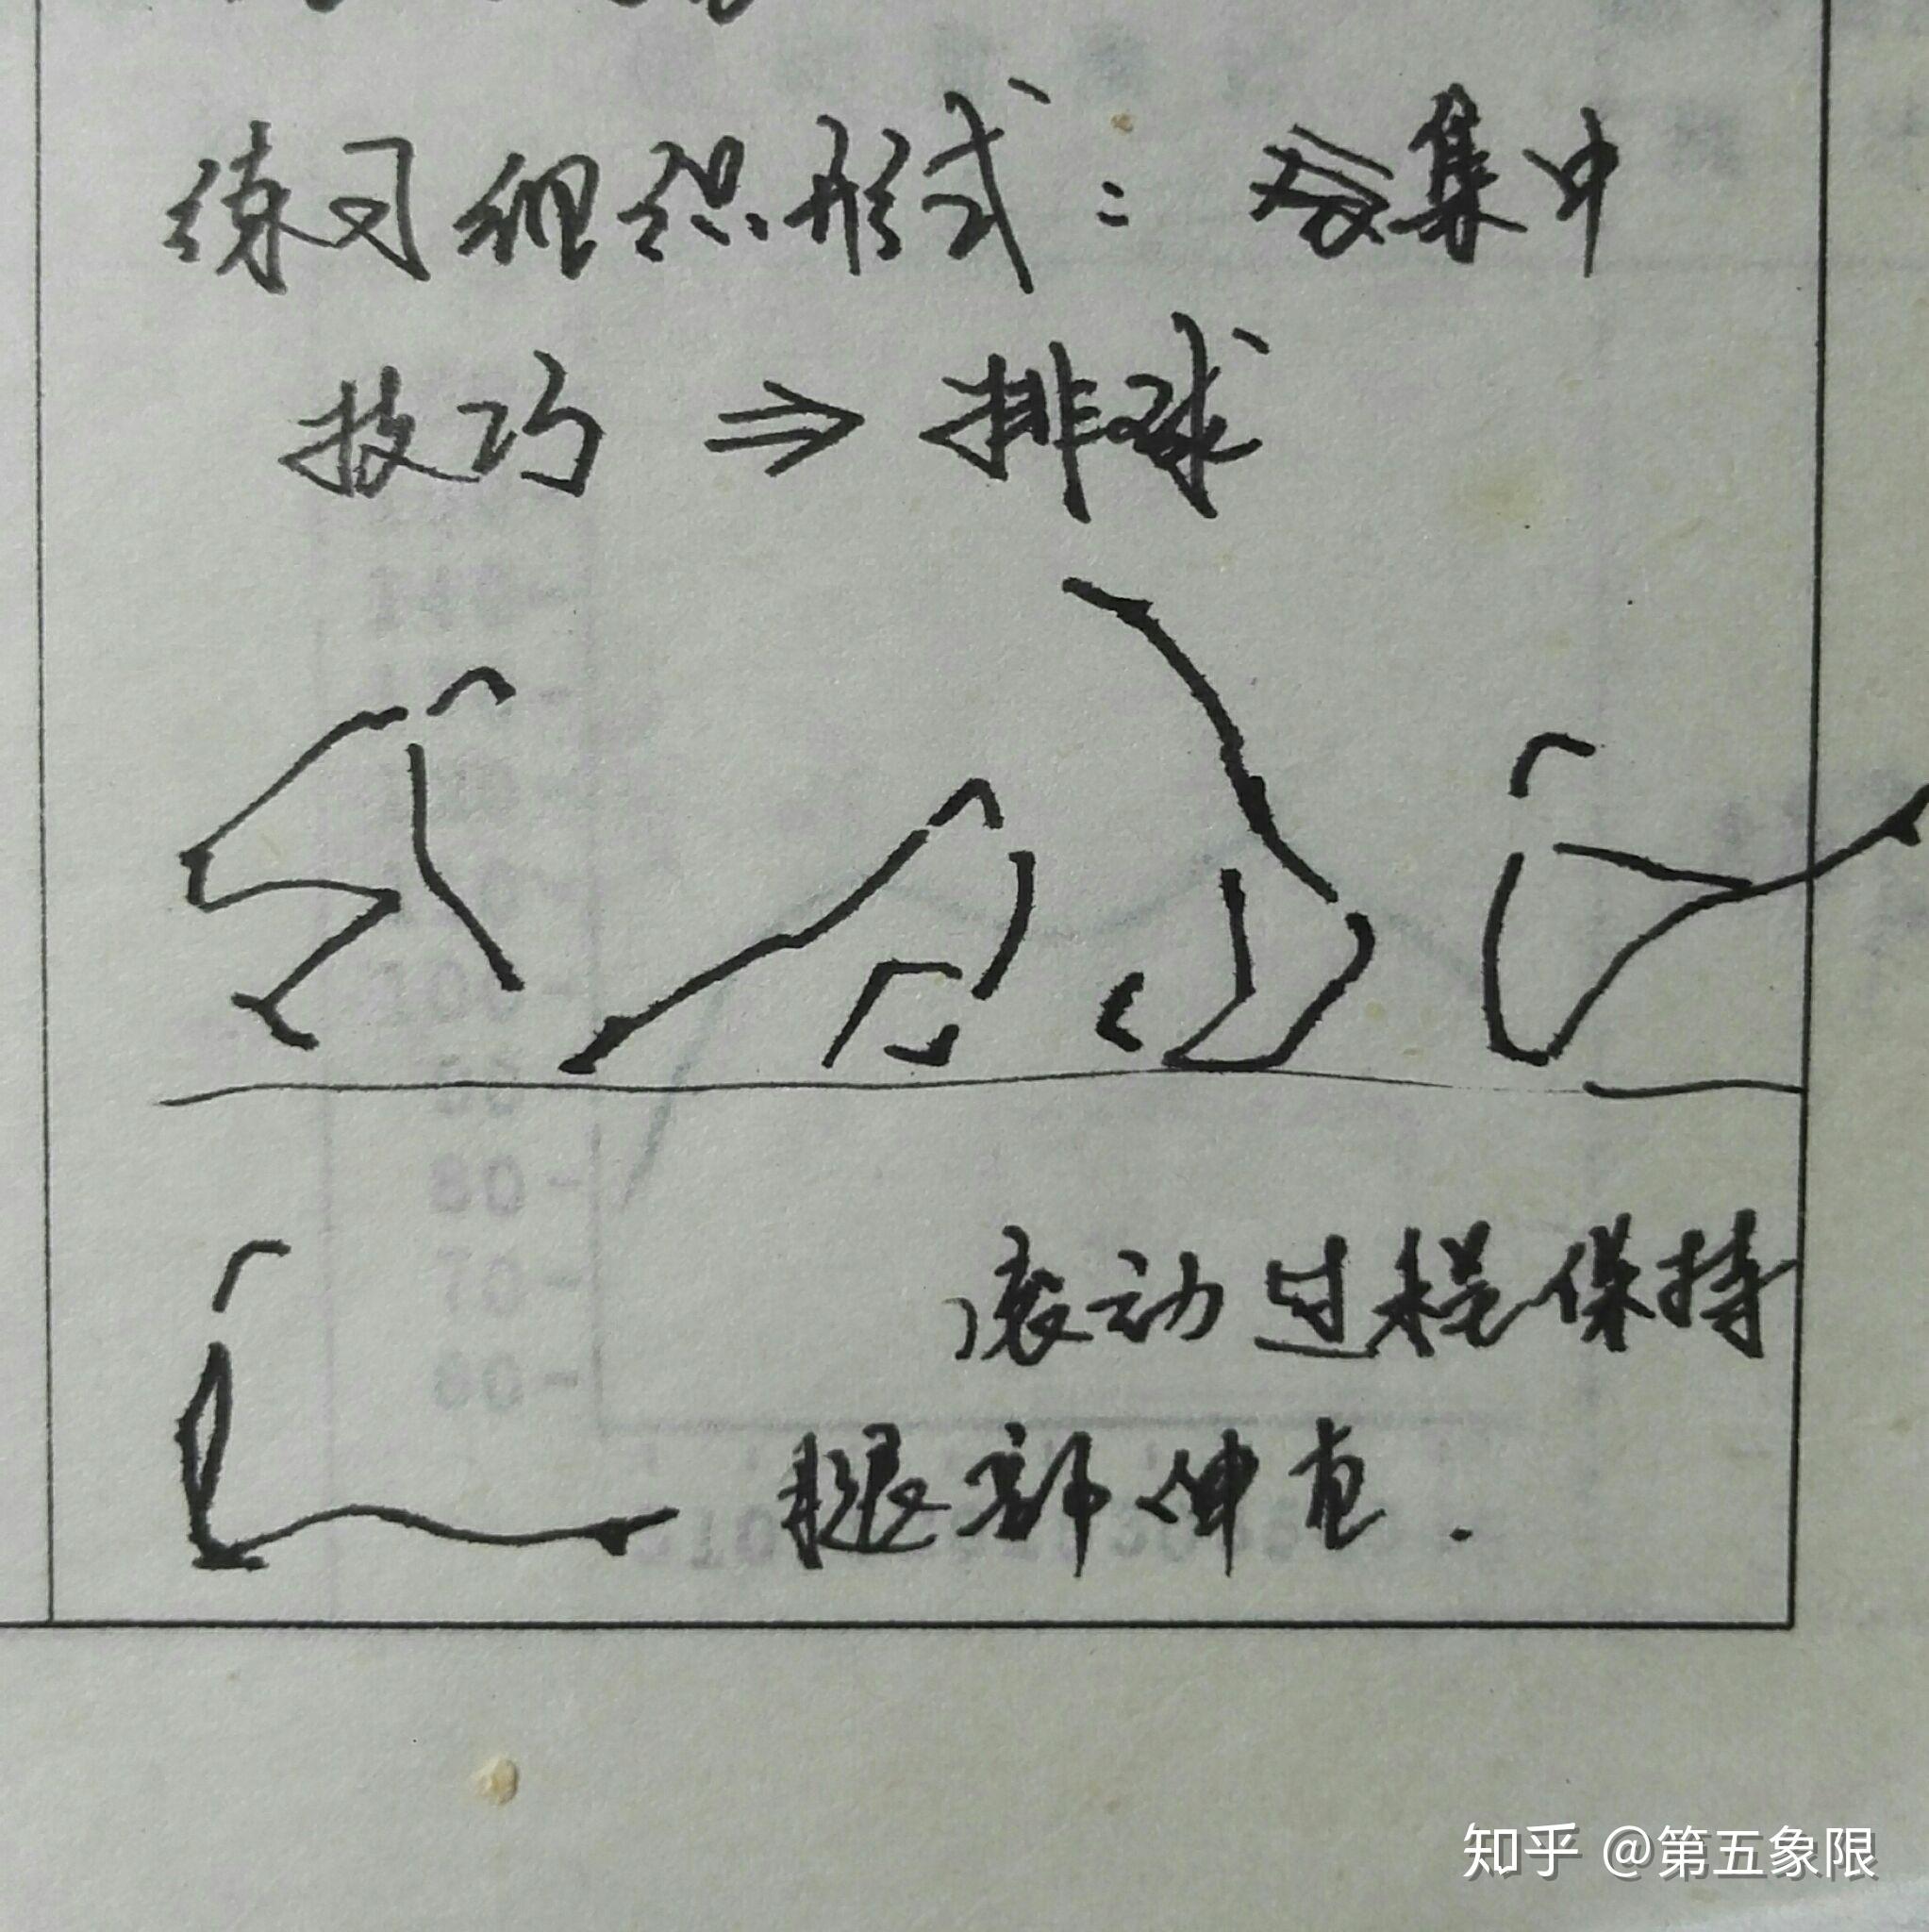 练习组织形式：集中
技巧 ⇒ 排球
滚动过程保持
腿部伸直.
知乎 @第五象限